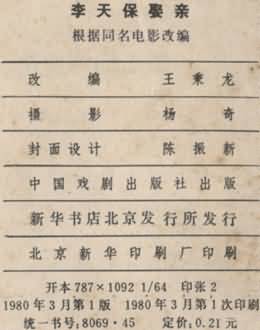 李天保娶亲
根据同名电影改编
改编 王秉龙
摄影 杨奇
封面设计 陈振新
中国戏剧出版社出版
新华书店北京发行所发行
北京新华印刷厂印刷
开本787×1092 1/64 印张2
1980年3月第1版 1980年3月第1次印刷
统一书号:8069·45 定价:0.21元